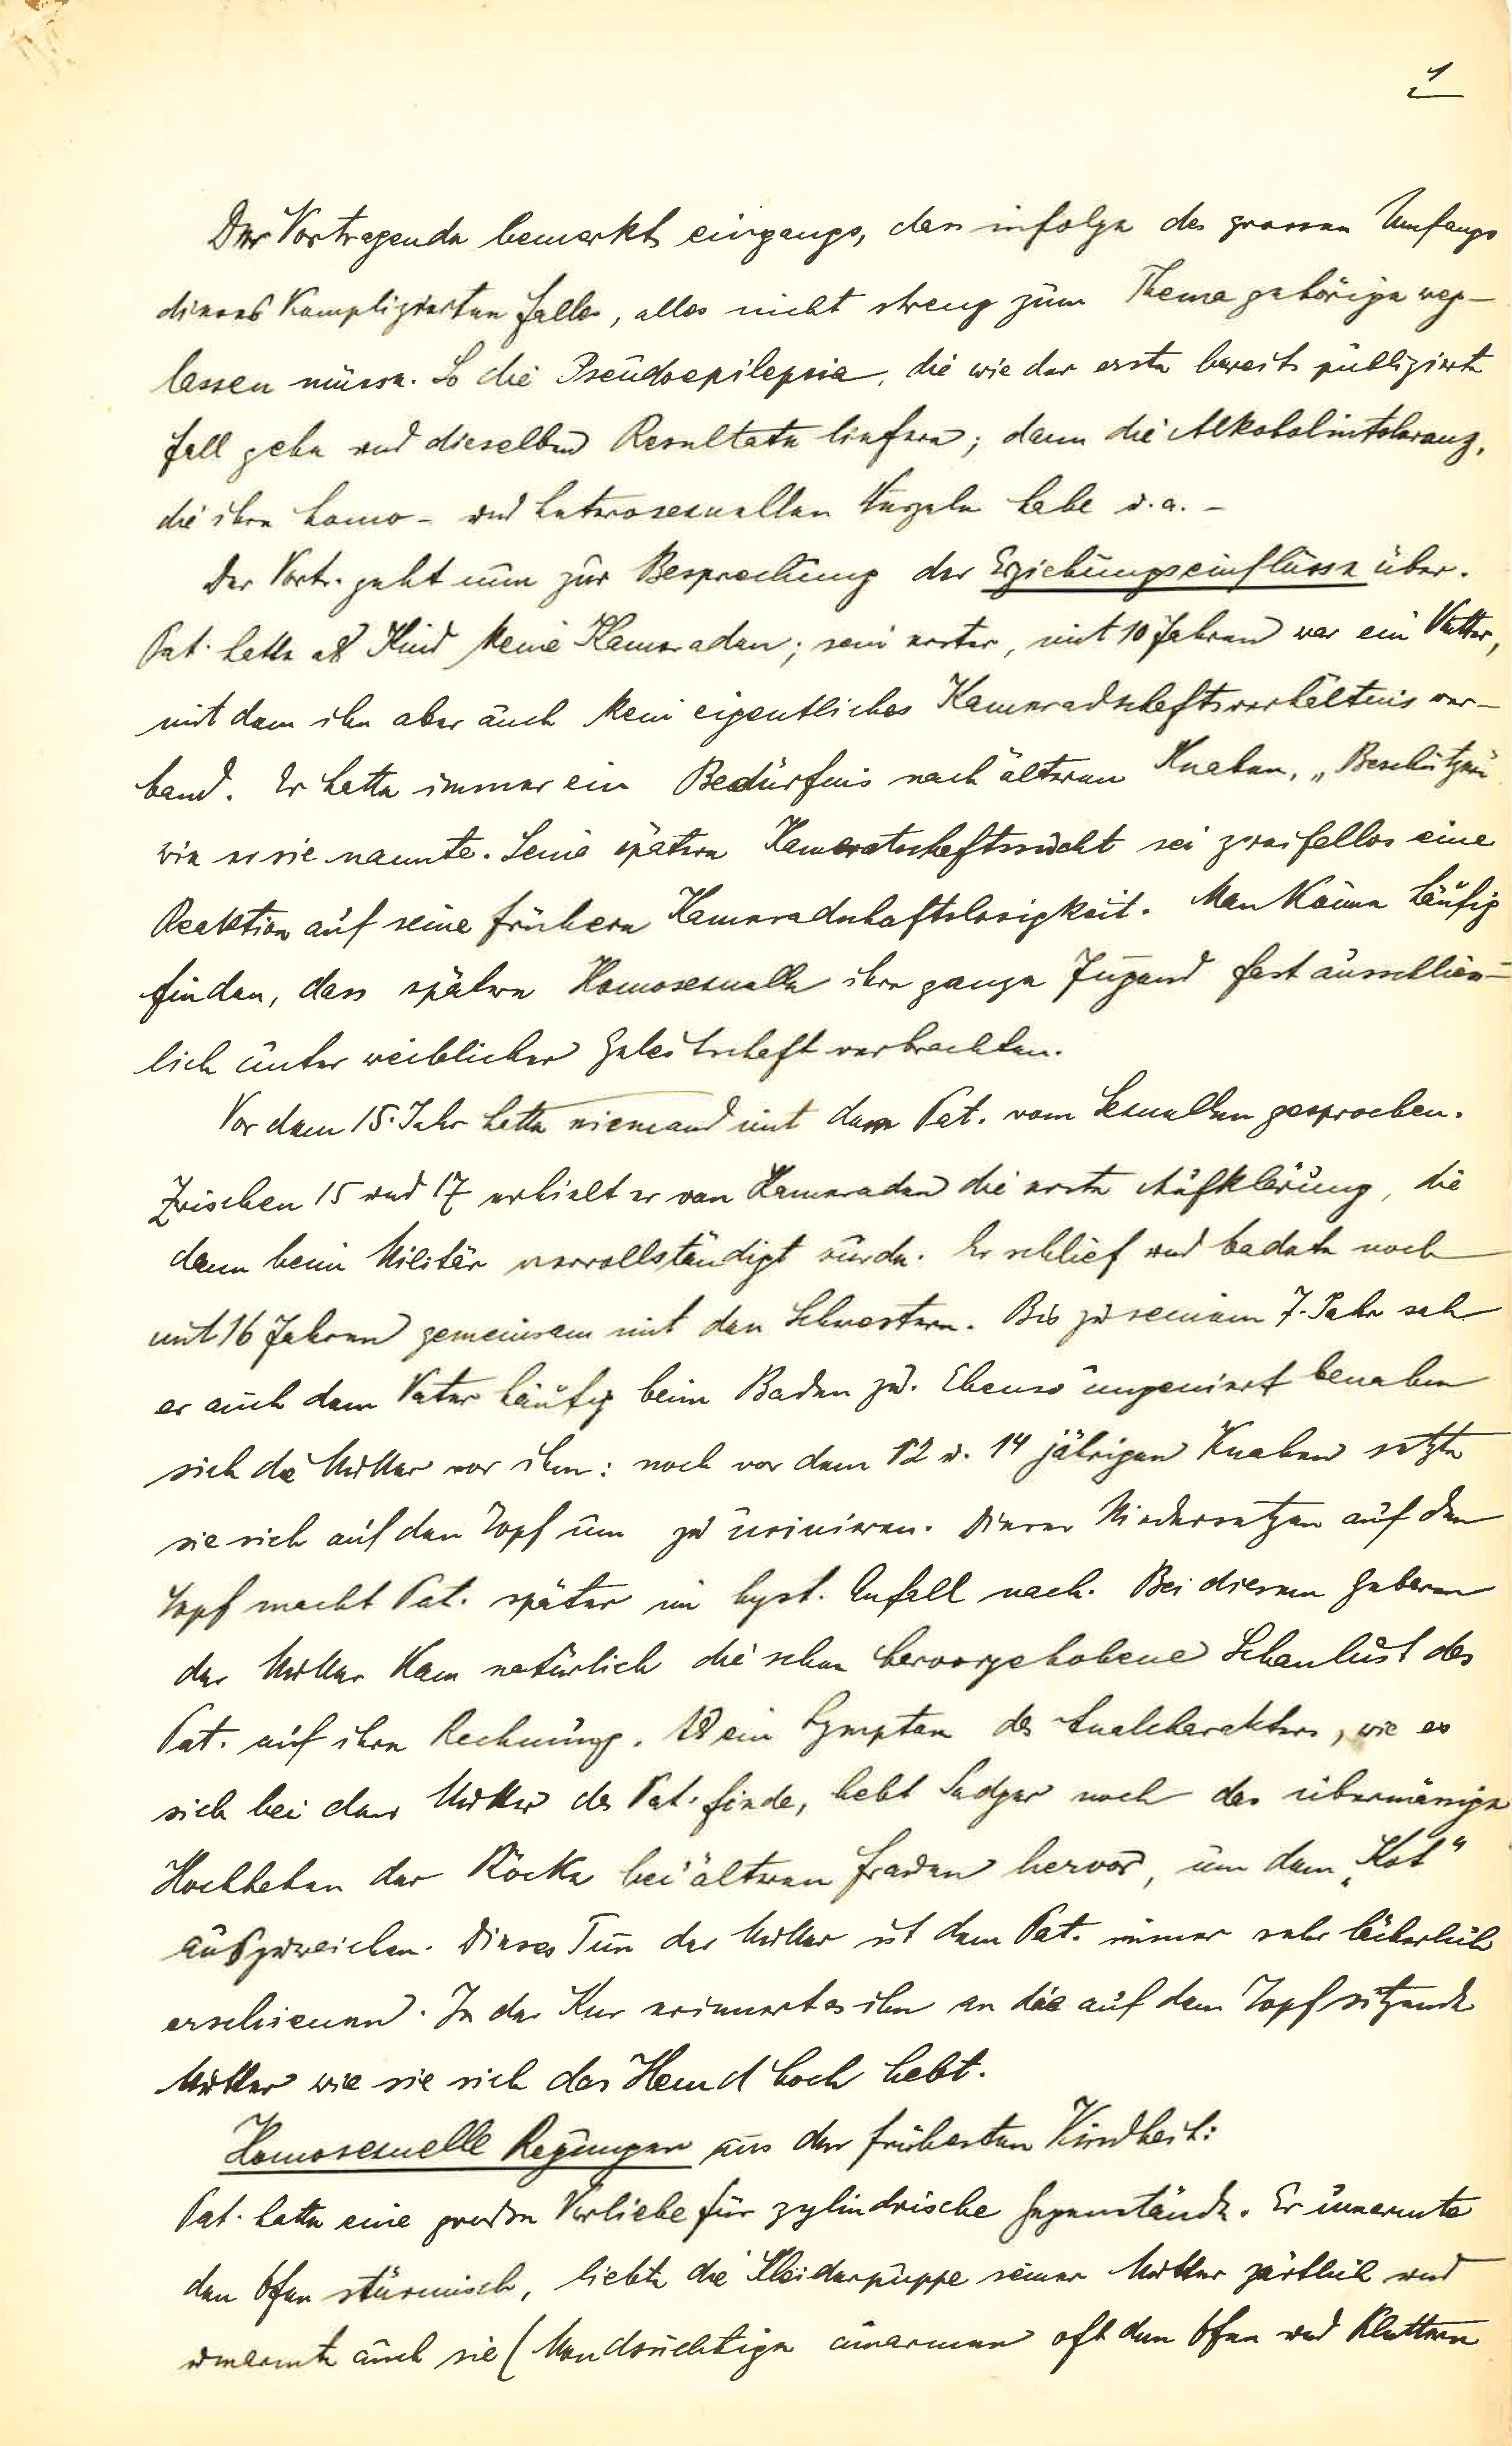 1
Der Vortragende bemerkt eingangs, dass infolge des grossen Umfangs
dieses komplizierten Falles, alles nicht streng zum Thema gehörige weg-
lassen müsse. So die Pseudoepilepsie, die wie der erste bereits publizierte
Fall gehe und dieselben Resultate liefere; dann die Alkoholintoleranz,
die ihre homo- und heterosexuellen Wurzeln habe u. a. -
Der Vortr. geht nun zur Besprechung der Erziehungseinflüsse über.
Pat. hatte als Kind keine Kameraden; sein erster, mit 10 Jahren war ein Vetter,
mit dem ihn aber auch kein eigentliches Kameradschaftsverhältnis ver-
band. Er hatte immer ein Bedürfnis nach älteren Knaben, „Beschützern
wie er sie nannte. Seine spätere Kameratschaftssucht sei zweifellos eine
Reaktion auf seine frühere Kameradschaftslosigkeit. Man könne häufig
finden, dass spätere Homosexuelle ihre ganze Jugend fast ausschliess-
lich unter weiblicher Gesellschaft verbrachten.
Vor dem 15. Jahr hatte niemand mit dem Pat. vom Sexuellen gesprochen.
Zwischen 15 und 17 erhielt er von Kameraden die erste Aufklärung, die
dann beim Militär vervollständigt wurde. Er schlief und badete noch
mit 16 Jahren gemeinsam mit den Schwestern. Bis zu seinem 7. Jahr sah
er auch dem Vater häufig beim Baden zu. Ebenso ungeniert benahm
sich die Mutter vor ihm: noch vor dem 12 u. 14 jährigen Knaben setzte
sie sich auf den Topf um zu urinieren. Dieses Niedersetzen auf den
Topf macht Pat. später im hyst. Anfall nach. Bei diesem Gebaren
der Mutter kam natürlich die schon hervorgehobene Schaulust des
Pat. auf ihre Rechnung. Als ein Symptom des Analcharakters, wie es
sich bei der Mutter des Pat. finde, hebt Sadger noch das übermässige
Hochheben der Röcke bei älteren Frauen hervor, um dem „Kot"
auszuweichen. Dieses Tun der Mutter ist dem Pat. immer sehr lächerlich
erschienen. In der Kur erinnert es ihn an die auf dem Topf sitzende
Mutter wie sie sich das Hemd hoch hebt.
Homosexuelle Regungen aus der frühesten Kindheit:
Pat. hatte eine grosse Vorliebe für zylindrische Gegenstände. Er umarmte
den Ofen stürmisch, liebte die Kleiderpuppe seiner Mutter zärtlich und
umarmte auch sie (Mondsüchtige umarmen oft den Ofen und klettern